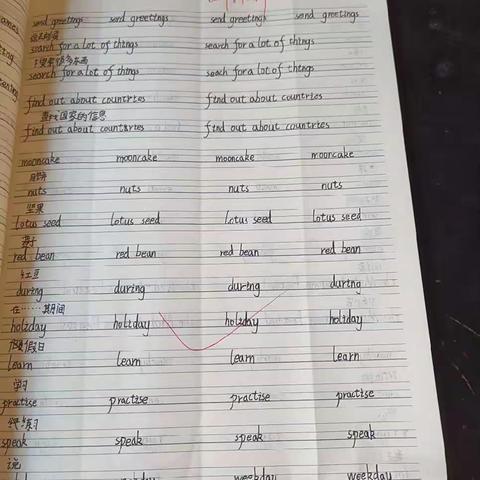 send greetings send greetings send greetings send greetings
search for a lot of things search for a lot of things
搜索很多东西
search for a lot of things seach for a lot of things
find out about countries find out about countries
查找国家的信息
find out about countries find out about countries
mooncake mooncake mooncake mooncake
月饼
nuts nuts nuts nuts
坚果
lotus seed lotus seed lotus seed lotus seed
莲子
red bean red bean red bean red bean
红豆
during during during during
在……期间
holiday holiday holiday holiday
假日
learn learn learn learn
学习
practise practise practise practise
练习
speak speak speak speak
说
weekday weekday